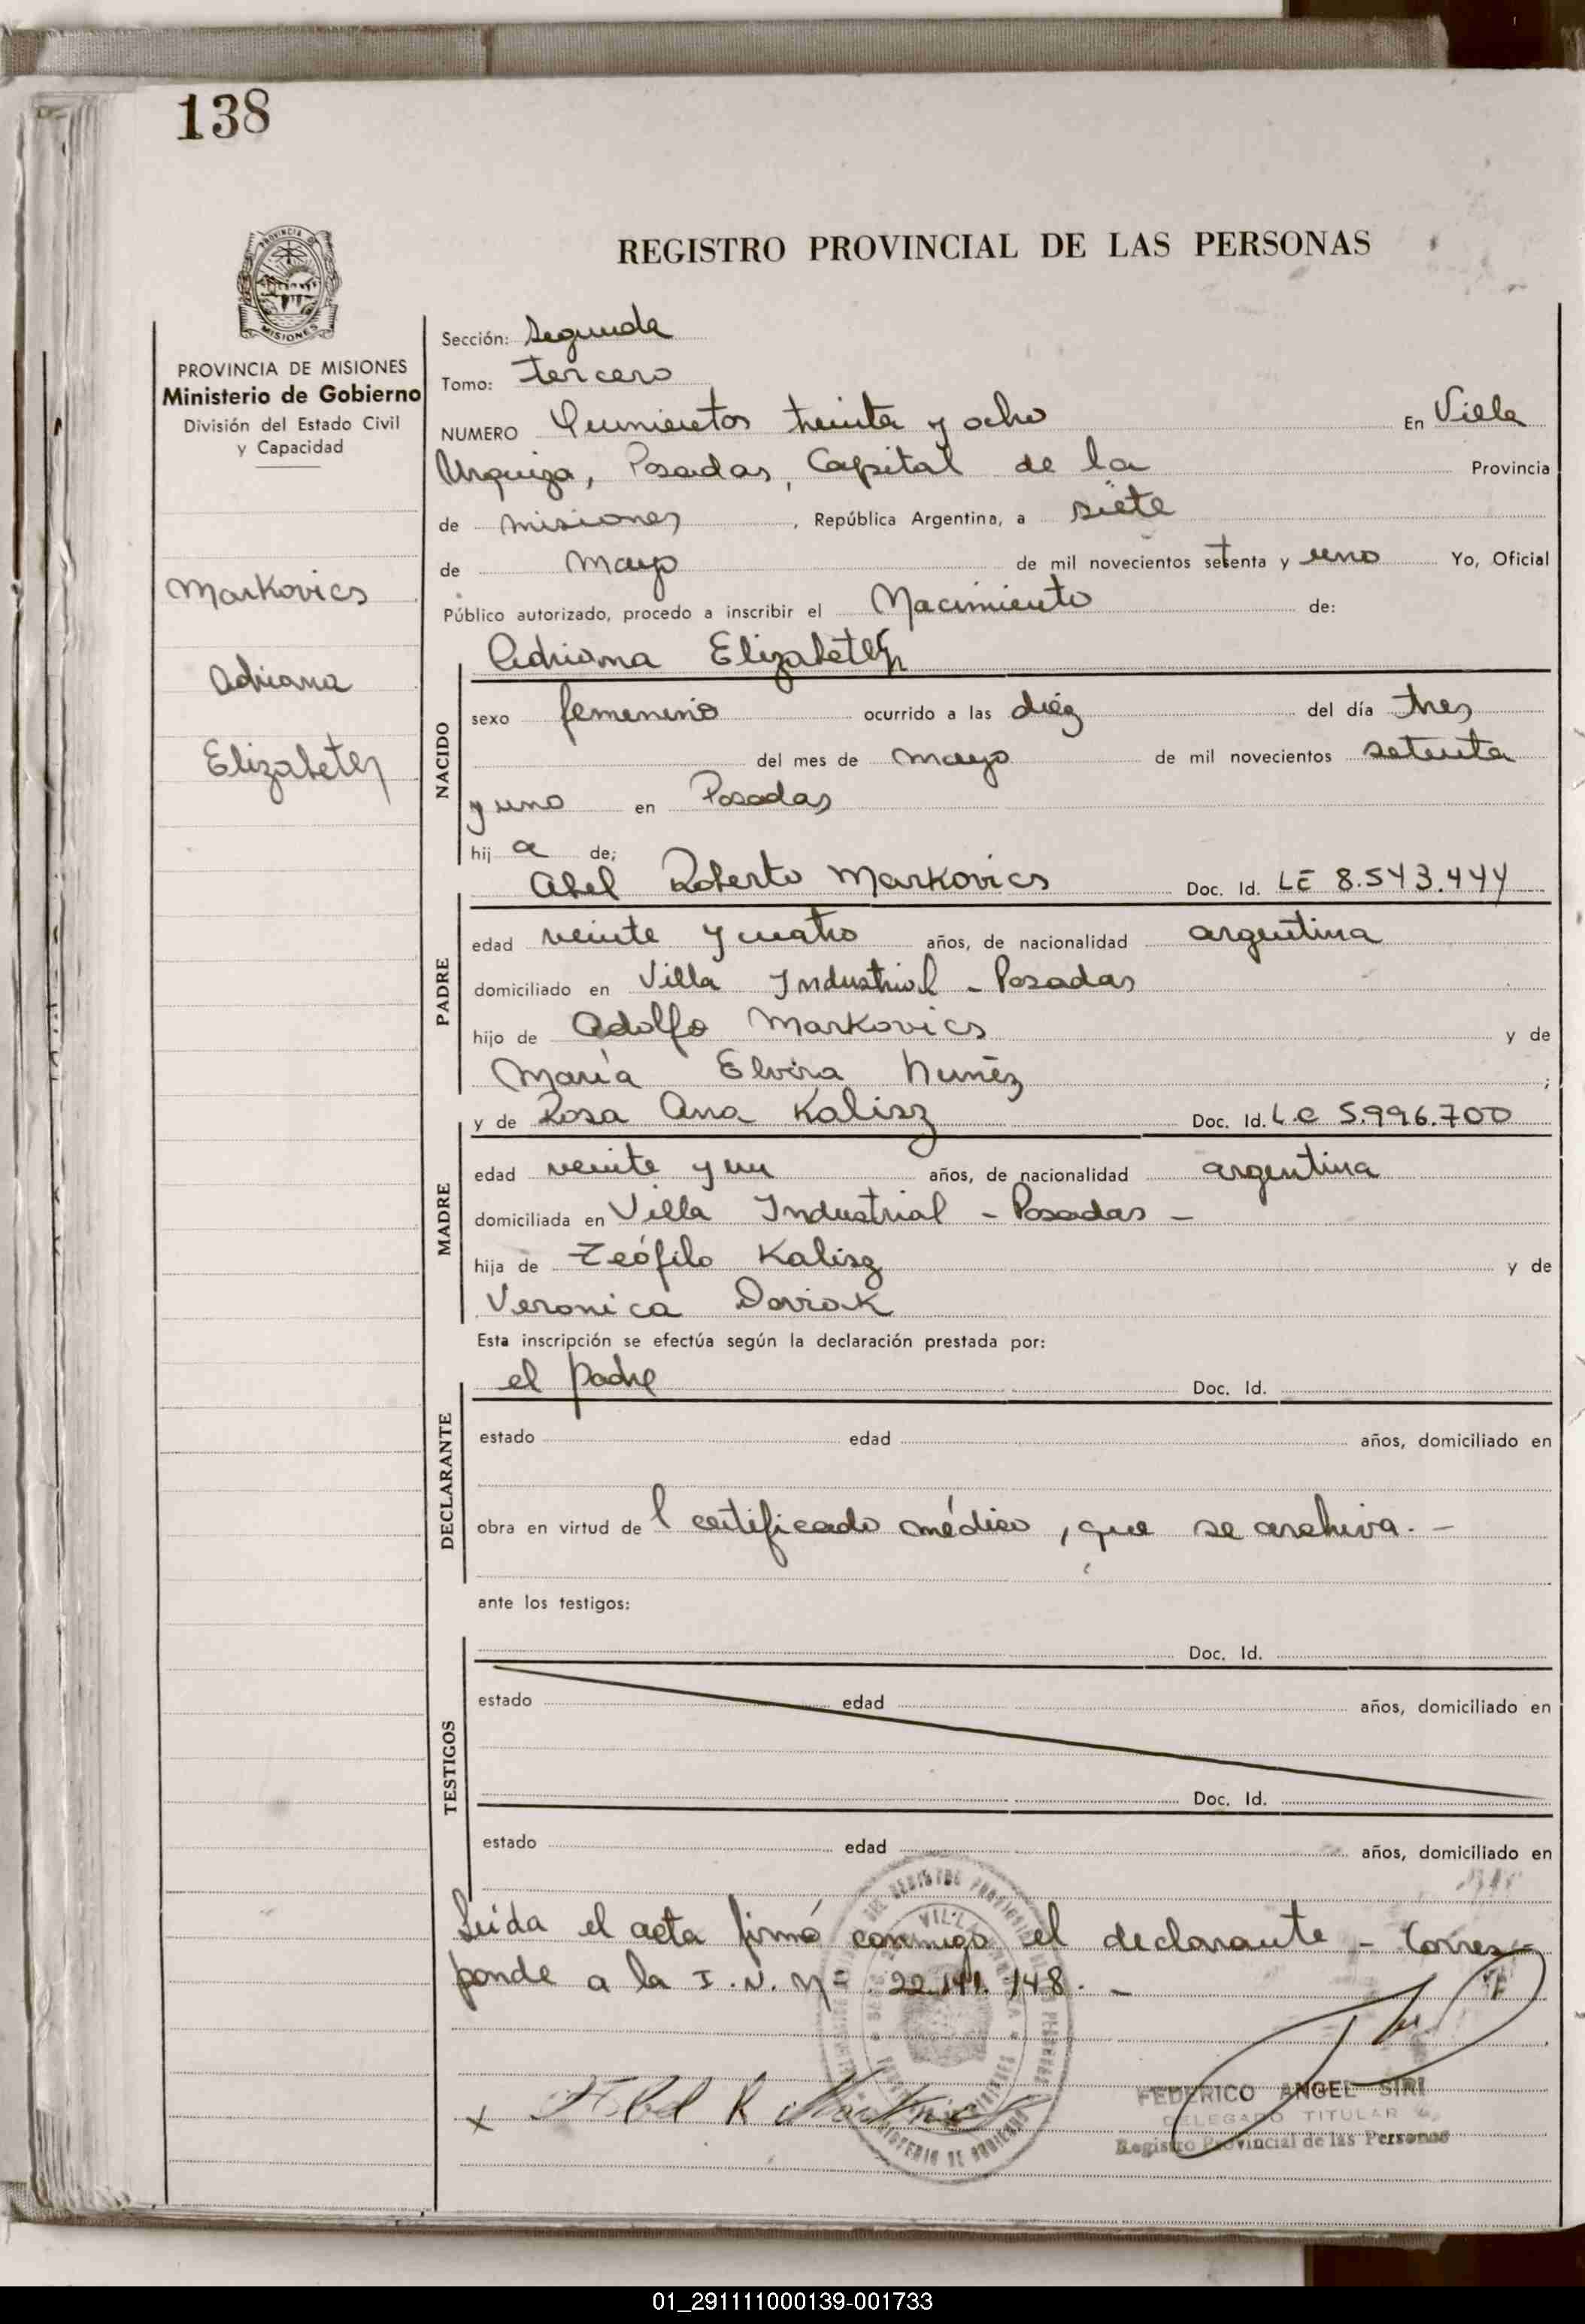 138
REGISTRO PROVINCIAL DE LAS PERSONAS
PROVINCIA DE MISIONES
Ministerio de Gobierno
División del Estado Civil
y Capacidad
Markovics
Adriana
Elizabeth
Sección: Segunda
Tomo: tercero
NUMERO Quinientos treinta y ocho En Villa
Urquiza, Posadas, Capital de la Provincia
de misiones, República Argentina, a siete
de mayo de mil novecientos setenta y uno Yo, Oficial
Público autorizado, procedo a inscribir el Nacimiento de:
Adriana Elizabeth
NACIDO
sexo femenino ocurrido a las diéz del día tres
del mes de mayo de mil novecientos setenta
y uno en Posadas
hij a de;
Abel Roberto Markovics Doc. Id. LE 8.543.444
PADRE
edad veinte y cuatro años, de nacionalidad argentina
domiciliado en Villa Industrial - Posadas
hijo de Adolfo Markovics y de
María Elvira Nuñéz ;
y de Rosa Ana Kalisz Doc. Id. L.C 5.996.700
MADRE
edad veinte y un años, de nacionalidad argentina
domiciliada en Villa Industrial - Posadas -
hija de Teófilo Kalisz y de
Veronica Doviak
Esta inscripción se efectúa según la declaración prestada por:
el padre Doc. Id.
DECLARANTE
estado edad años, domiciliado en
obra en virtud de l certificado médico, que se archiva. -
ante los testigos:
Doc. Id.
TESTIGOS
estado edad años, domiciliado en
Doc. Id.
estado edad años, domiciliado en
Leida el acta firmó conmigo el declarante - Corres-
ponde a la I. N. Nº 22.141.148. -
x Abel R
FEDERICO ANGEL SIRI
DELEGADO TITULAR
Registro Provincial de las Personas
01_291111000139-001733